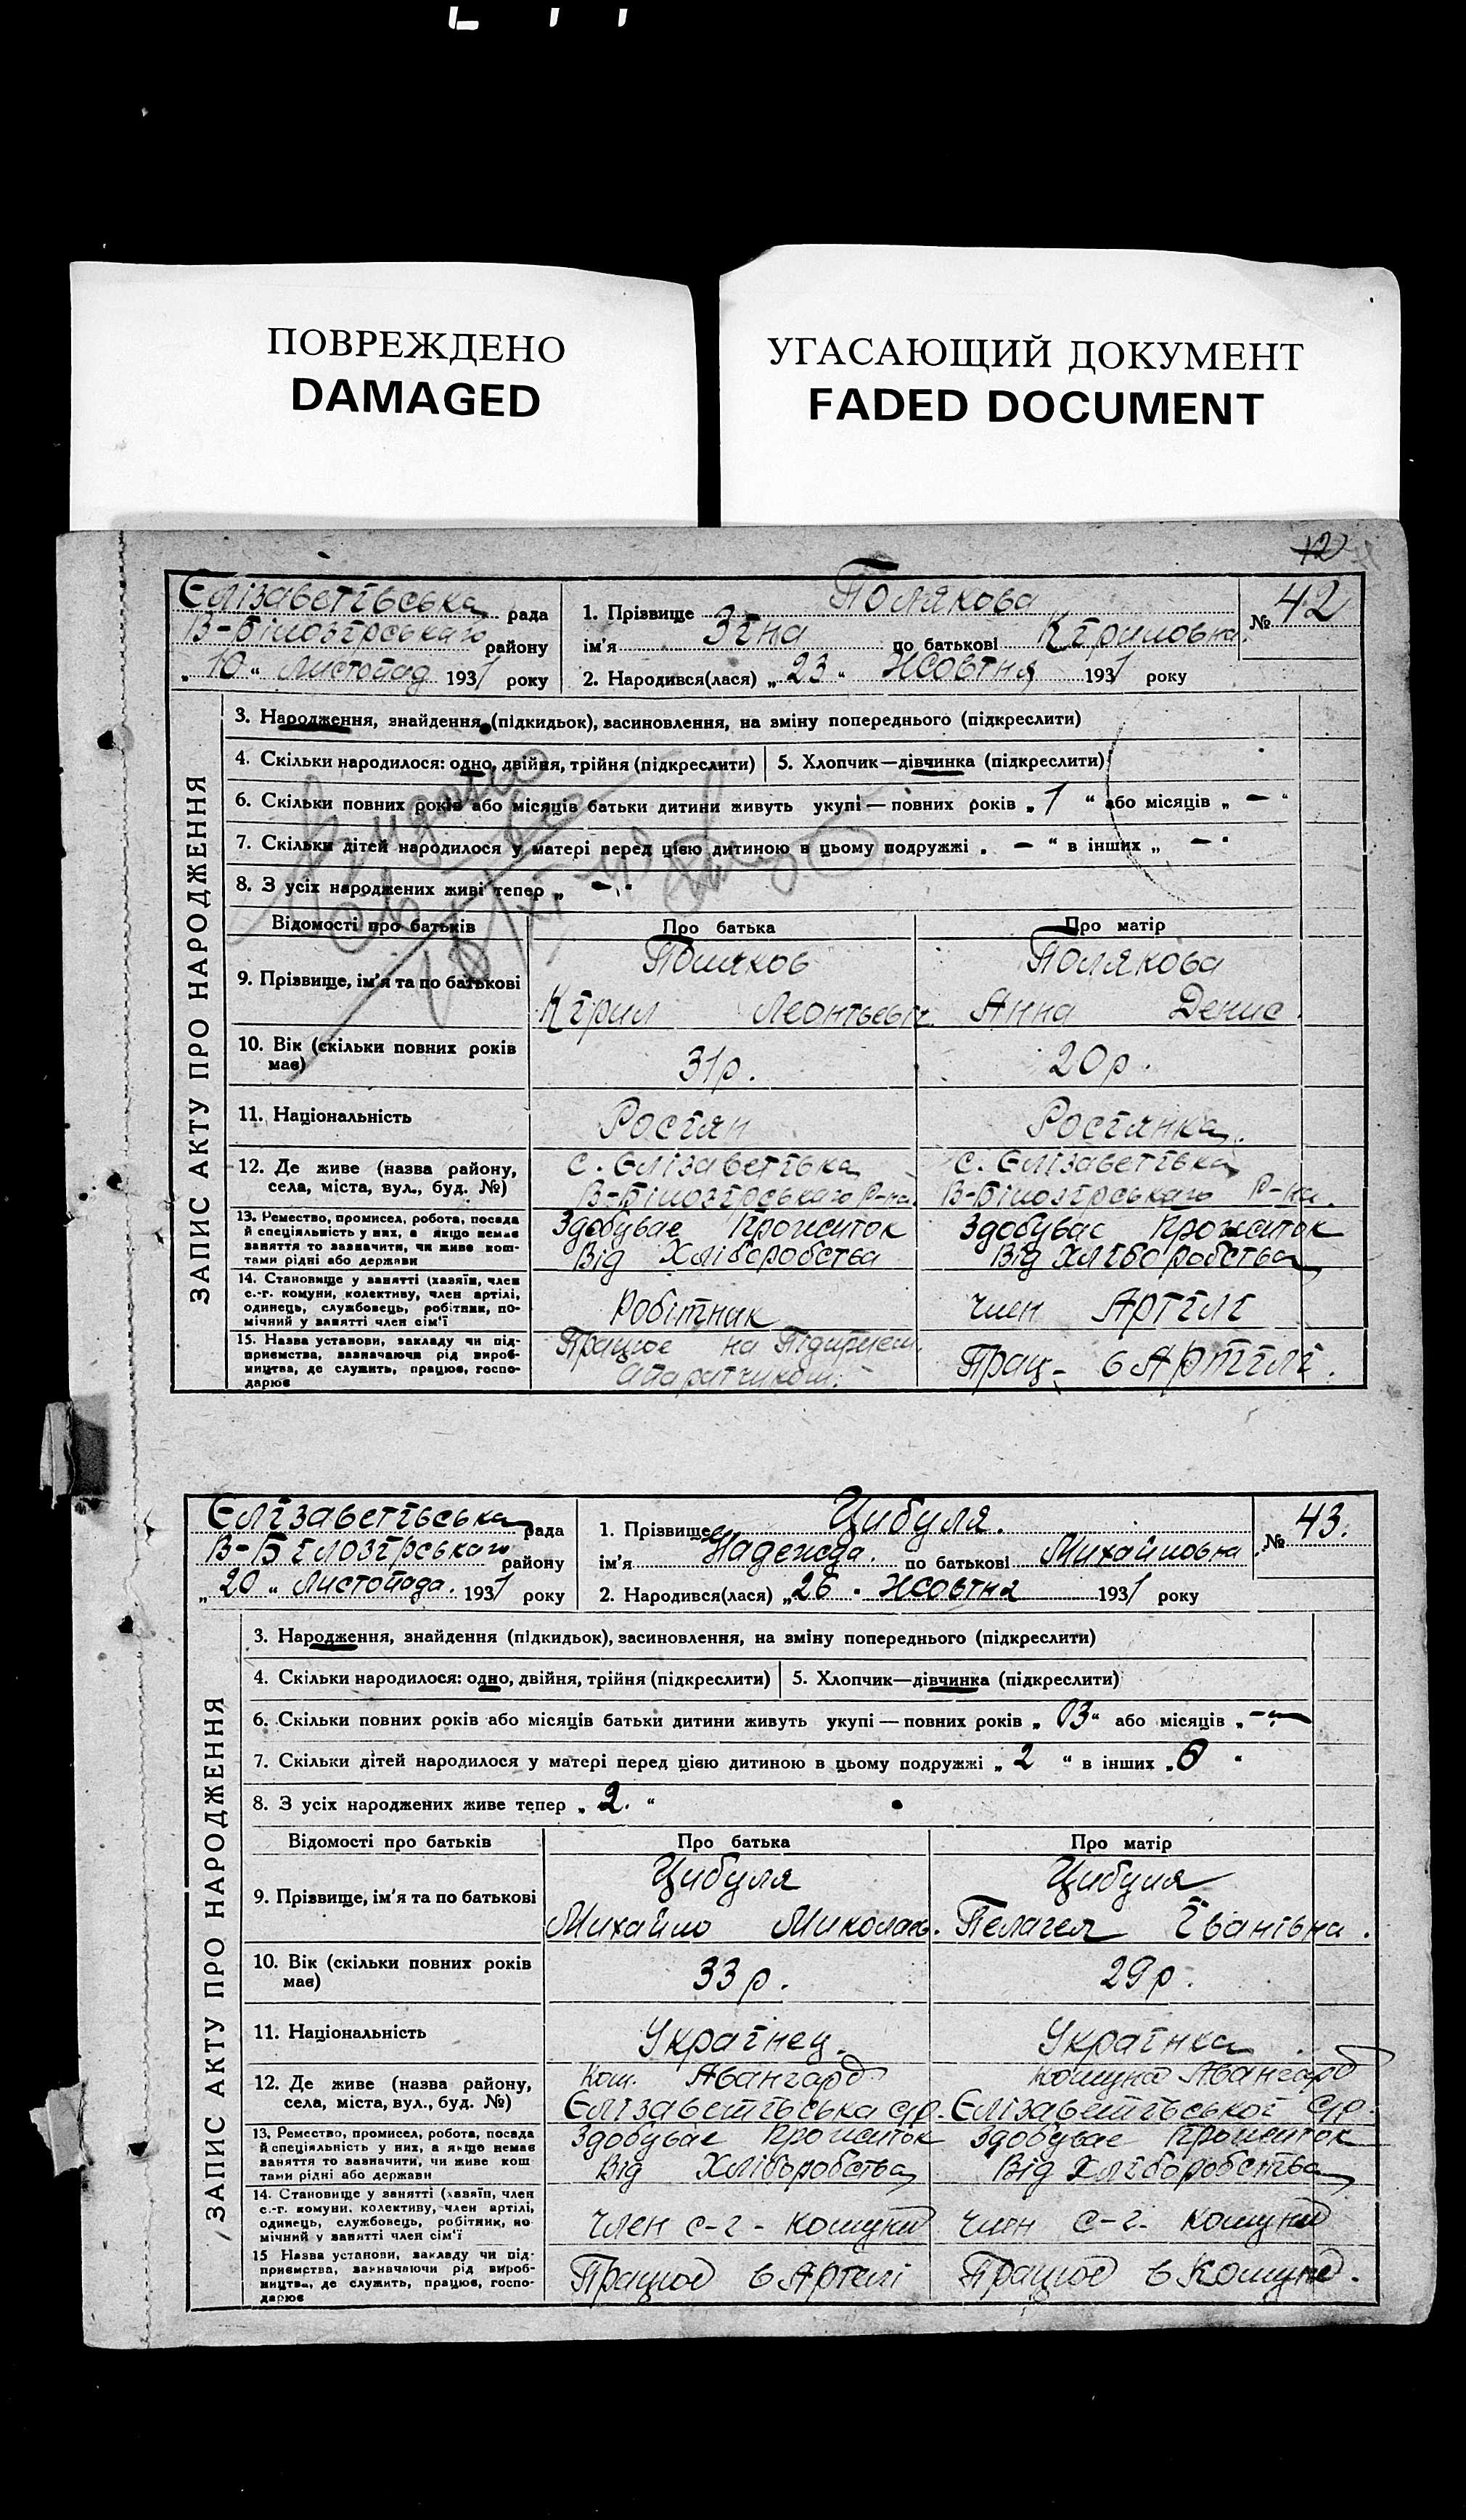 ПОВРЕЖДЕНО
DAMAGED
УГАСАЮЩИЙ ДОКУМЕНТ
FADED DOCUMENT
12
Єлізаветївська рада
В-Білозїрського району
„ 10 “ Листопад 1931 року
1. Прізвище Полякова
ім'я Зїна по батькові Кїриловна.
2. Народився(лася) „ 23 “ Жовтня 1931 року
№ 42
ЗАПИС АКТУ ПРО НАРОДЖЕННЯ
3. Народження, знайдення (підкидьок), засиновлення, на зміну попереднього (підкреслити)
4. Скільки народилося: одно, двійня, трійня (підкреслити) 5. Хлопчик—дівчинка (підкреслити)
6. Скільки повних років або місяців батьки дитини живуть укупі — повних років „ 1 “ або місяців „ — “
7. Скільки дітей народилося у матері перед цією дитиною в цьому подружжі „ — “ в інших „ — “
8. З усіх народжених живі тепер „ — “
Відомості про батьків Про батька Про матір
9. Прізвище, ім'я та по батькові
Поляков
Кїрил Леонтьевіч
Полякова
Анна Денис.
10. Вік (скільки повних років
має)
31р. 20р.
11. Національність Росїян Росїянка.
12. Де живе (назва району,
села, міста, вул., буд. №)
с. Єлізаветївка
В-Білозїрського Р-на.
с. Єлізаветївка
В-Білозїрського Р-на.
13. Ремество, промисел, робота, посада
й спеціяльність у них, а якщо немає
заняття то зазначити, чи живе кош-
тами рідні або держави
Здобуває Прожиток
Від Хліборобства
Здобуває Прожиток
Від Хлїборобства
14. Становище у занятті (хазяїн, член
с.-г. комуни, колективу, член артілі,
одинець, службовець, робітник, по-
мічний у занятті член сім'ї
Робітник член Артїлї
15. Назва установи, закладу чи під-
приємства, зазначаючи рід вироб-
ництва, де служить, працює, госпо-
дарює
Працює на Підприєм.
Апаратчиком.
Прац- в Артїлї.
Єлїзаветївська рада
В-Бїлозїрського району
„ 20 “ Листопада. 1931 року
1. Прізвище Цибуля.
ім'я Надежда. по батькові Михайловна
2. Народився(лася) „ 26 “ Жовтня 1931 року
№ 43.
ЗАПИС АКТУ ПРО НАРОДЖЕННЯ
3. Народження, знайдення (підкидьок), засиновлення, на зміну попереднього (підкреслити)
4. Скільки народилося: одно, двійня, трійня (підкреслити) 5. Хлопчик—дівчинка (підкреслити)
6. Скільки повних років або місяців батьки дитини живуть укупі — повних років „ 03 “ або місяців „ —
7. Скільки дітей народилося у матері перед цією дитиною в цьому подружжі „ 2 “ в інших „ 0 “
8. З усіх народжених живе тепер „ 2. “
Відомості про батьків Про батька Про матір
9. Прізвище, ім'я та по батькові
Цибуля
Михайло Миколаєв.
Цибуля
Пелагея Їванївна.
10. Вік (скільки повних років
має)
33р. 29р.
11. Національність Українец. Українка
12. Де живе (назва району,
села, міста, вул., буд. №)
Ком. Авангард
Єлізаветївська с/р.
Комуна Авангард
Єлізаветївської с/р.
13. Ремество, промисел, робота, посада
й спеціяльність у них, а якщо немає
заняття то зазначити, чи живе кош
тами рідні або держави
Здобуває Прожиток
Від Хліборобства
Здобуває Прожиток
Від Хлїборобства
14. Становище у занятті (хазяїн, член
с.-г. комуни, колективу, член артілі,
одинець, службовець, робітник, по
мічний у занятті член сім'ї
Член с-г- комуни член с-г- комуни
15 Назва установи, закладу чи під-
приємства, зазначаючи рід вироб-
ництва, де служить, працює, госпо-
дарює
Працює в Артелі Працює в Комуне.